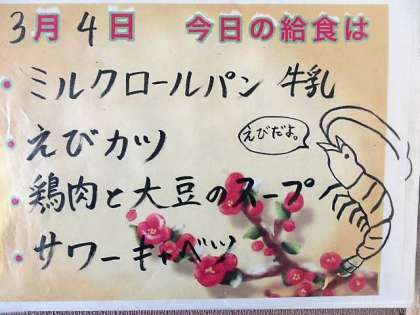 3月4日 今日の給食は
ミルクロールパン 牛乳
えびカツ
えびだよ。
鶏肉と大豆のスープ
サワーキャベツ